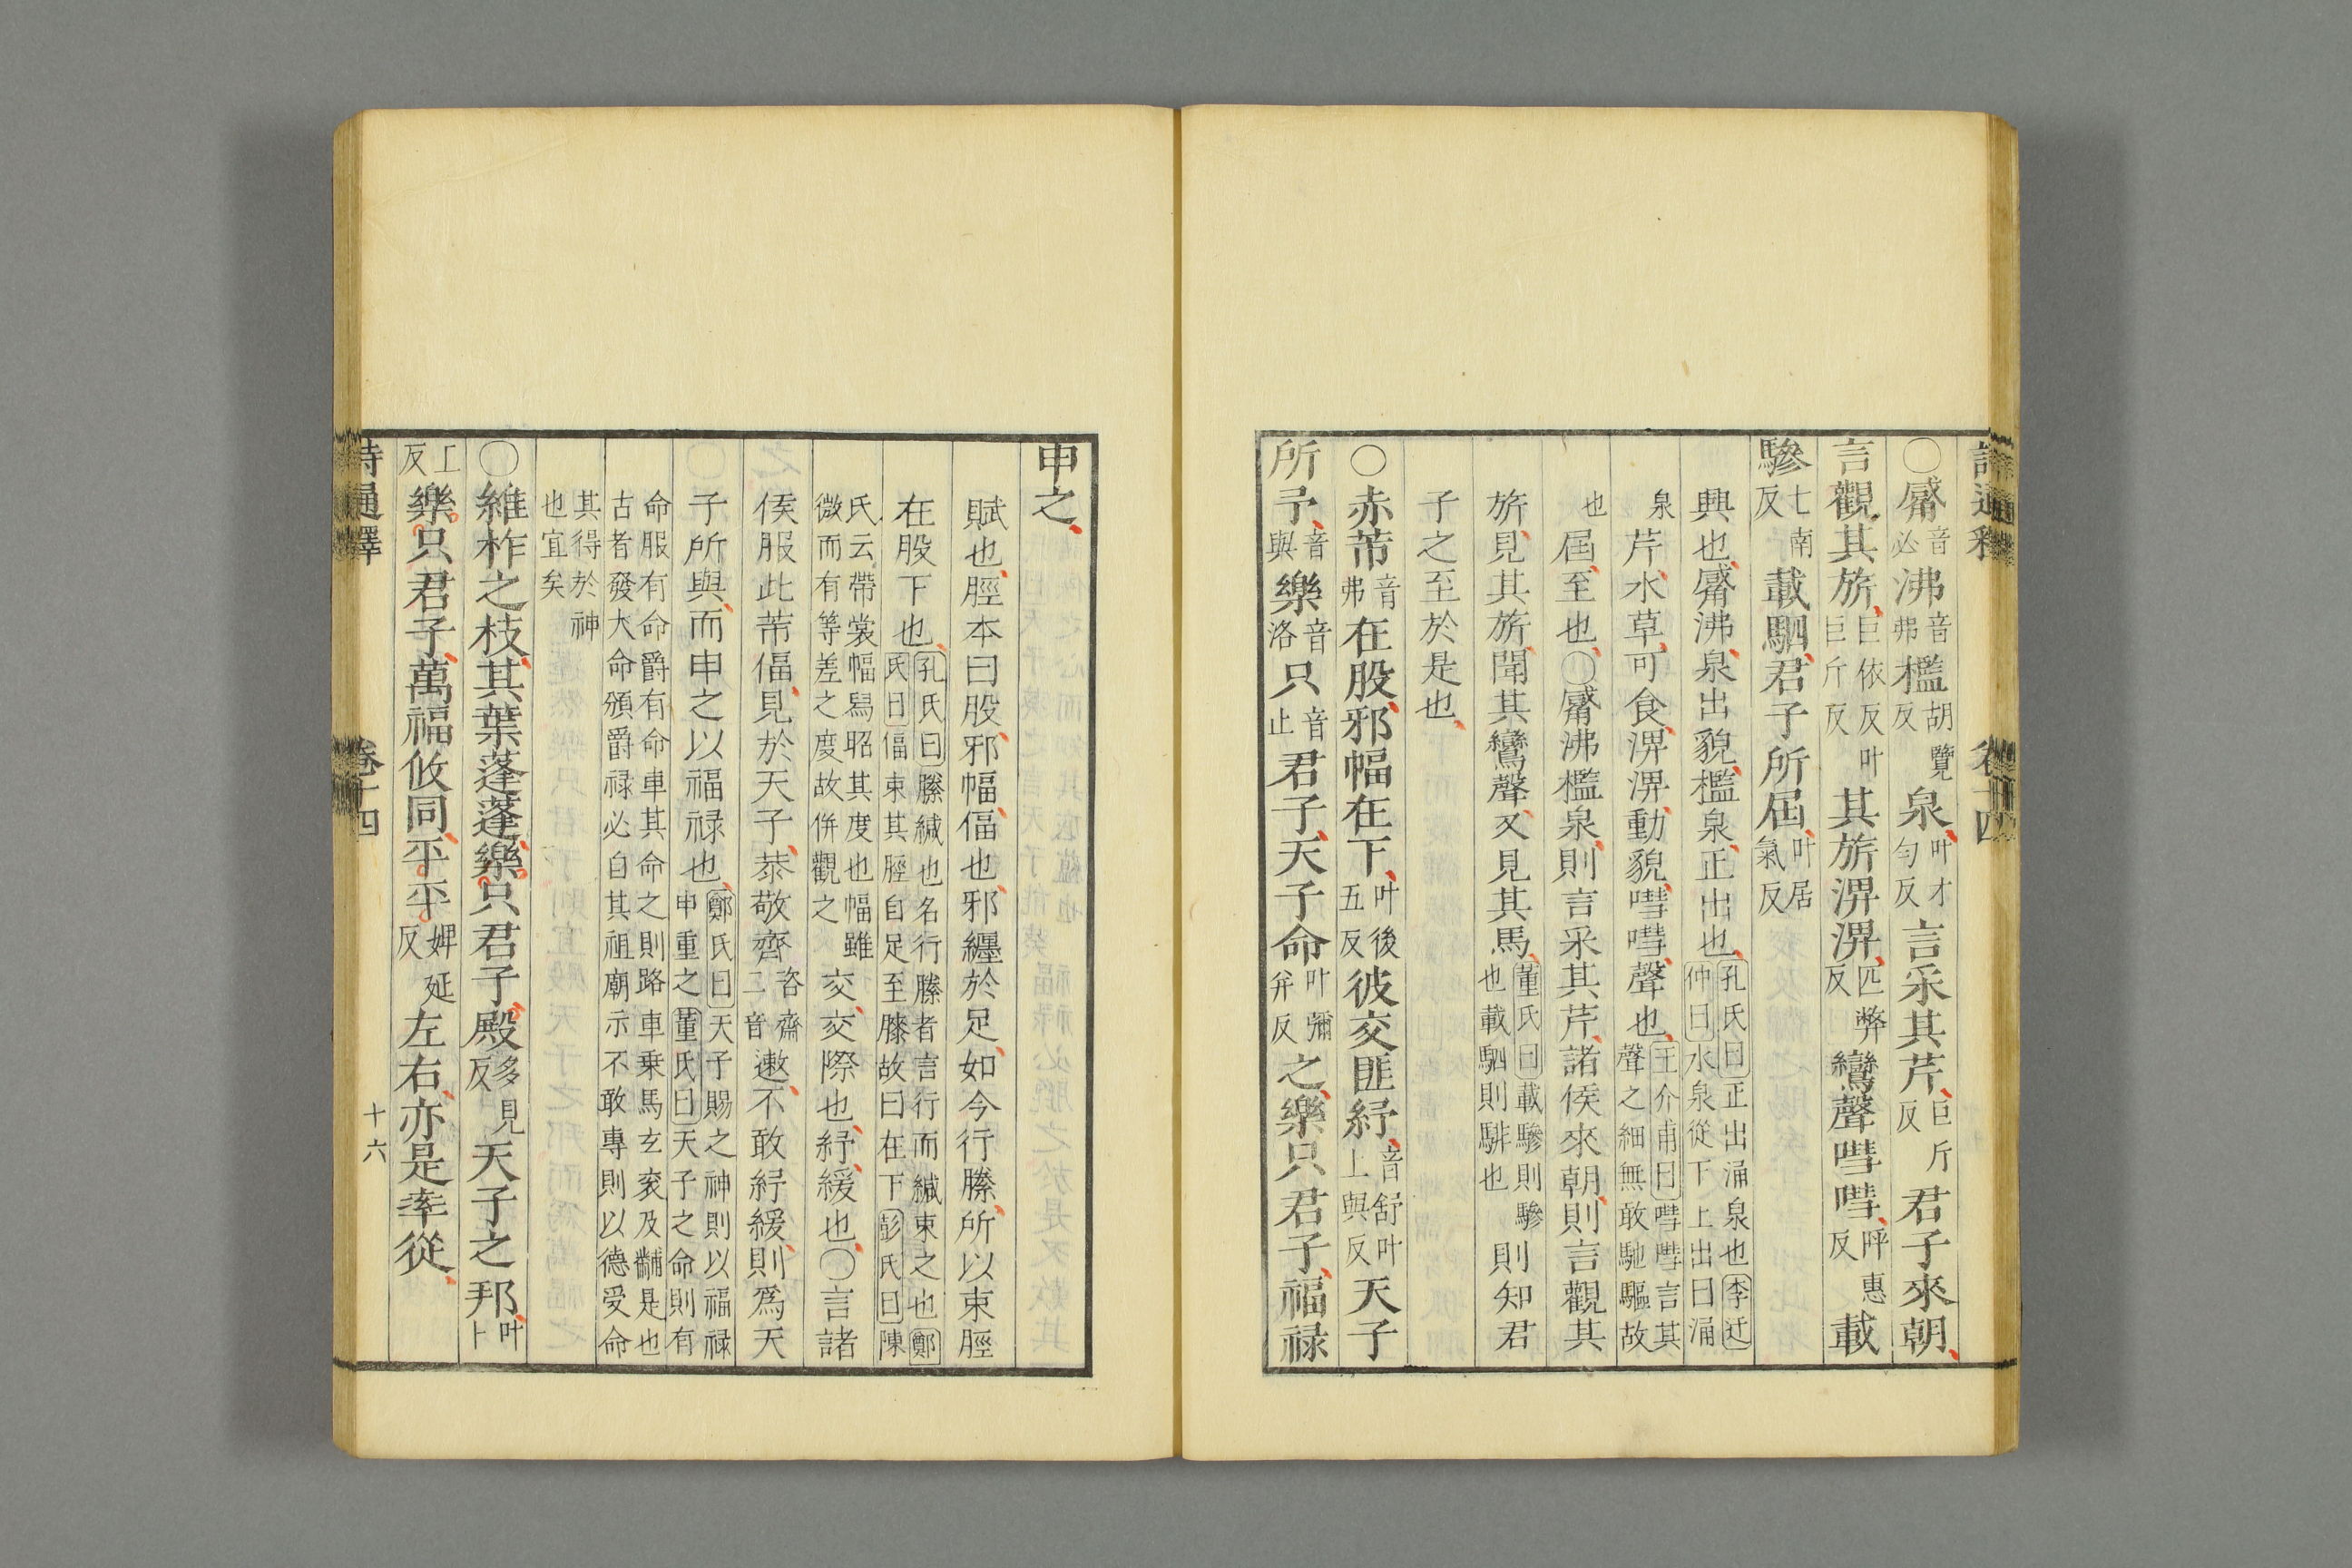 詩通釋 卷十四
○觱音必沸音弗檻胡覽反泉叶才勻反言采其芹巨斤反君子來朝
言觀其旂巨依反叶巨斤反其旂淠淠匹弊反鸞聲嘒嘒呼惠反載
驂七南反載駟君子所屆叶居氣反
興也觱沸泉出貌檻泉正出也孔氏曰正出涌泉也李迃仲曰水泉從下上出曰涌
泉芹水草可食淠淠動貌嘒嘒聲也王介甫曰嘒嘒言其聲之細無敢馳驅故
也屆至也○觱沸檻泉則言采其芹諸侯來朝則言觀其
旂見其旂聞其鸞聲又見其馬董氏曰載驂則驂也載駟則騑也則知君
子之至於是也
○赤芾音弗在股邪幅在下叶後五反彼交匪紓音舒叶上與反天子
所予音與樂音洛只音止君子天子命叶彌幷反之樂只君子福祿
申之
賦也脛本曰股邪幅偪也邪纏於足如今行縢所以束脛
在股下也孔氏曰縢緘也名行縢者言行而緘束之也鄭氏曰偪束其脛自足至膝故曰在下彭氏曰陳
氏云帶裳幅舄昭其度也幅雖微而有等差之度故併觀之交交際也紓緩也○言諸
侯服此芾偪見於天子恭敬齊咨齋二音遫不敢紓緩則爲天
子所與而申之以福祿也鄭氏曰天子賜之神則以福祿申重之董氏曰天子之命則有
命服有命爵有命車其命之則路車乗馬玄衮及黼是也古者發大命頒爵祿必自其祖廟示不敢專則以德受命
其得於神也宜矣
○維柞之枝其葉蓬蓬樂只君子殿多見反天子之邦叶卜
工反樂只君子萬福攸同平平婢延反左右亦是率從
詩通釋 卷十四 十六